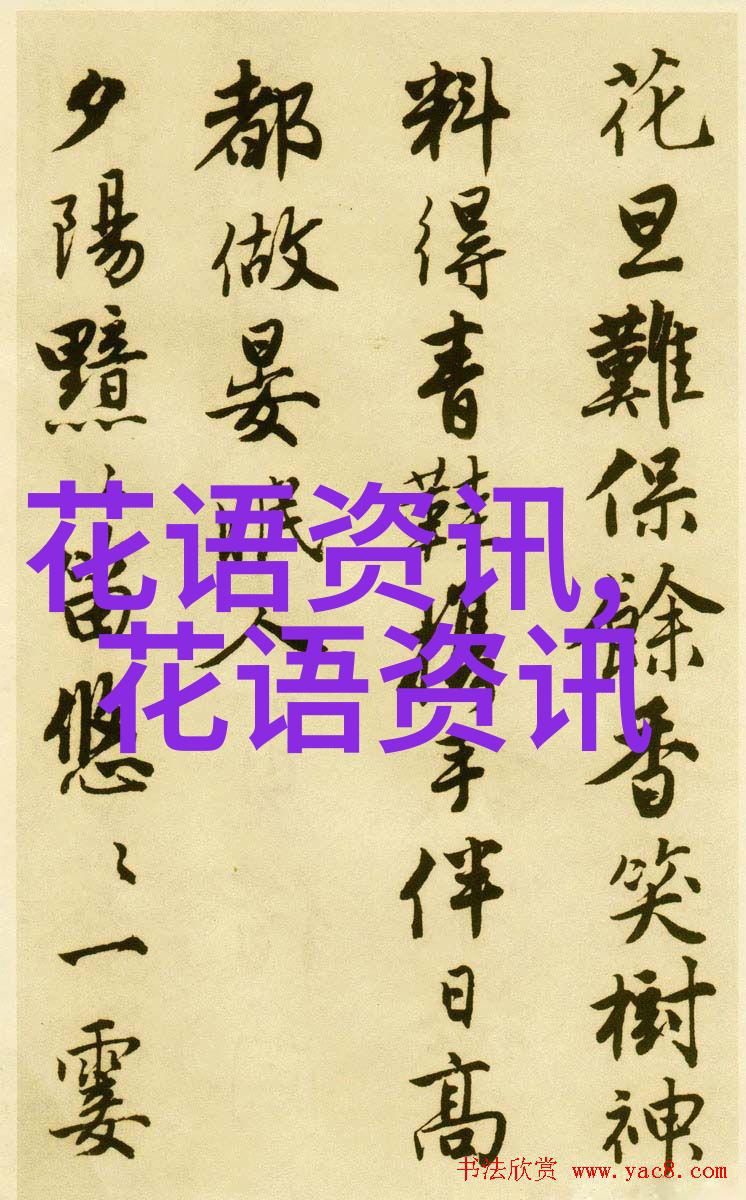 花旦難保餘香笑樹神
料得青鞋携手伴日高
都做晏眠人
夕陽黯〻笛悠〻一霎
花语资讯,
花语资讯
书法欣赏 www.yac8.com